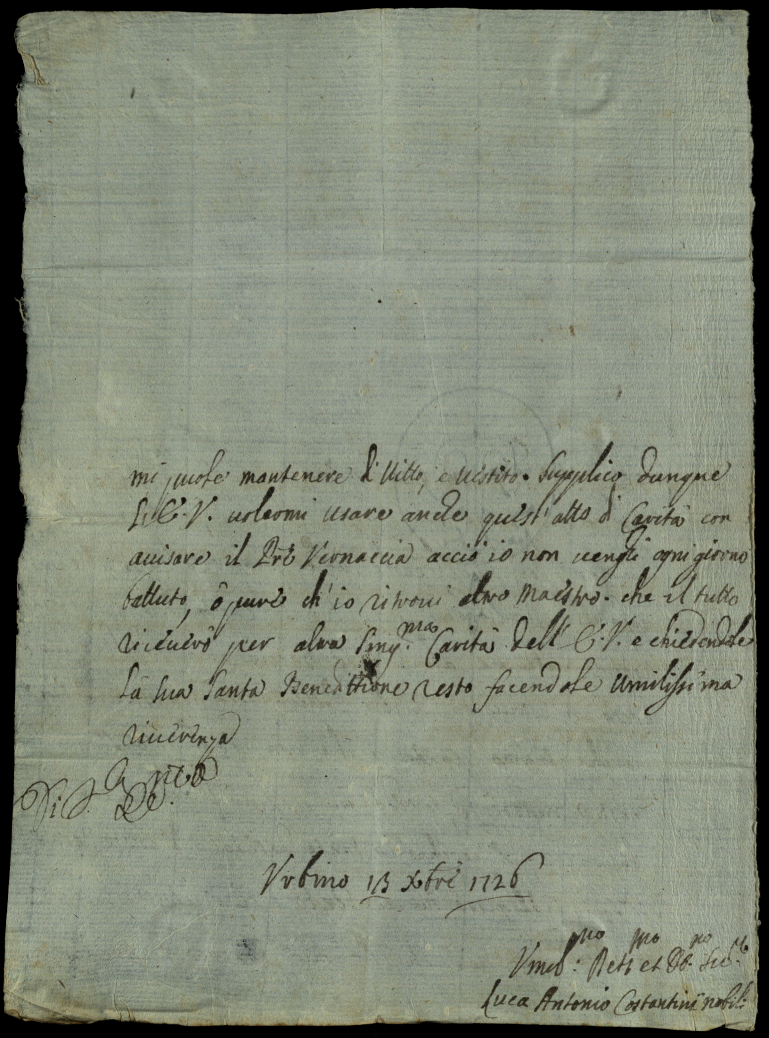 mi puole mantenere di Vitto, e uistito. Supplico dunque
L'E.V. uolermi usare anche quest'atto di Carità con
auisare il Prē Vernaccia acciò io non uenghi ogni giorno
battuto, ò pure ch'io ritroui altro Maestro. che il tutto
riceuerò per altra Sing.ma Carità dell'E.V. e chiedendole
la sua Santa Benedittione resto facendole Umilissima
riuerenza
Di
Urbino 13 Xbrē 1726
Umil:mo et
Luca Antonio Costantini nobili